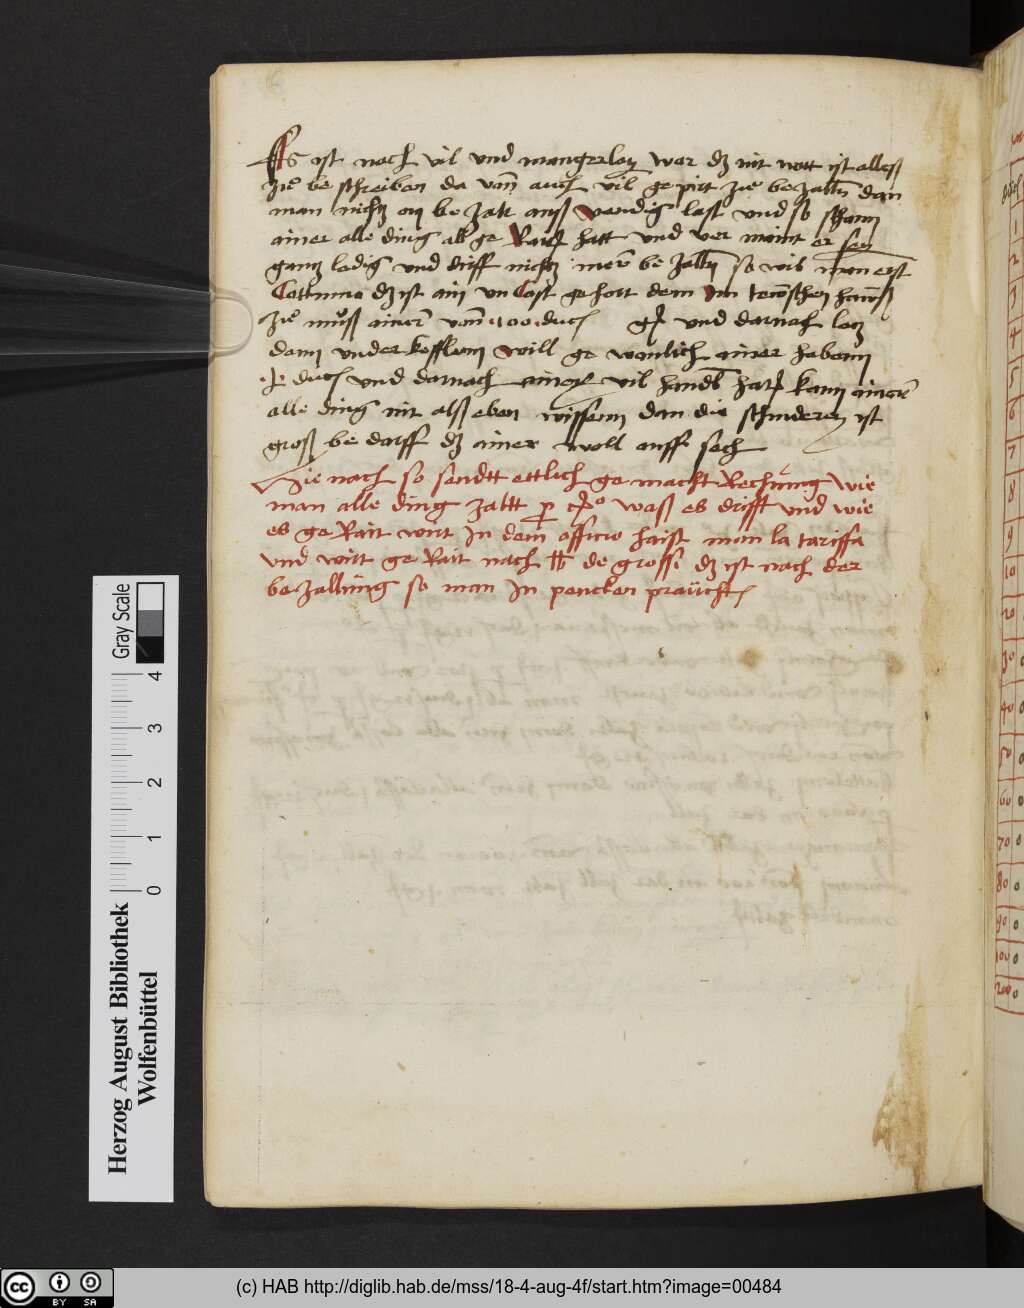 Es ist noch vil und mangerlay war dz nit nott ist alless
zu be schreiben da vann auch vil ge pirt zu be zalln dan
man nichtz on be zalt auss vendig last und so schonn
ainer alle ding ab ge Rait hatt und ver maint er sey
gantz ledig und dirff nichtz mer be zalln so wil man erst
Cottumo dz ist ain un Cost ge hort dem Im tewschen hawss
zu muss ainer vonn 100 duc und darnach
dem under keffleln will ge wonlich ainer habenn
duc und darnach ainer vil handl hatt kann ainer
alle ding nit alss eben wissenn dan die schinderey ist
gross be darff dz ainer woll auff sech
Hie nach so sendtt ettlich ge macht Rechnung wie
man alle ding zaltt p co wass es drifft und wie
es ge Rait wirt In dem officio haist man la tariffa
und wirt ge Rait nach de grossi dz ist nach der
be zallung so man In pencken praucht
Herzog August Bibliothek
Wolfenbüttel
0 1 2 3 4
Gray Scale
1
2
3
4
5
6
7
8
9
10
20
30
40
50
60
70
80
90
100
200
(c) HAB http://diglib.hab.de/mss/18-4-aug-4f/start.htm?image=00484
cc BY SA